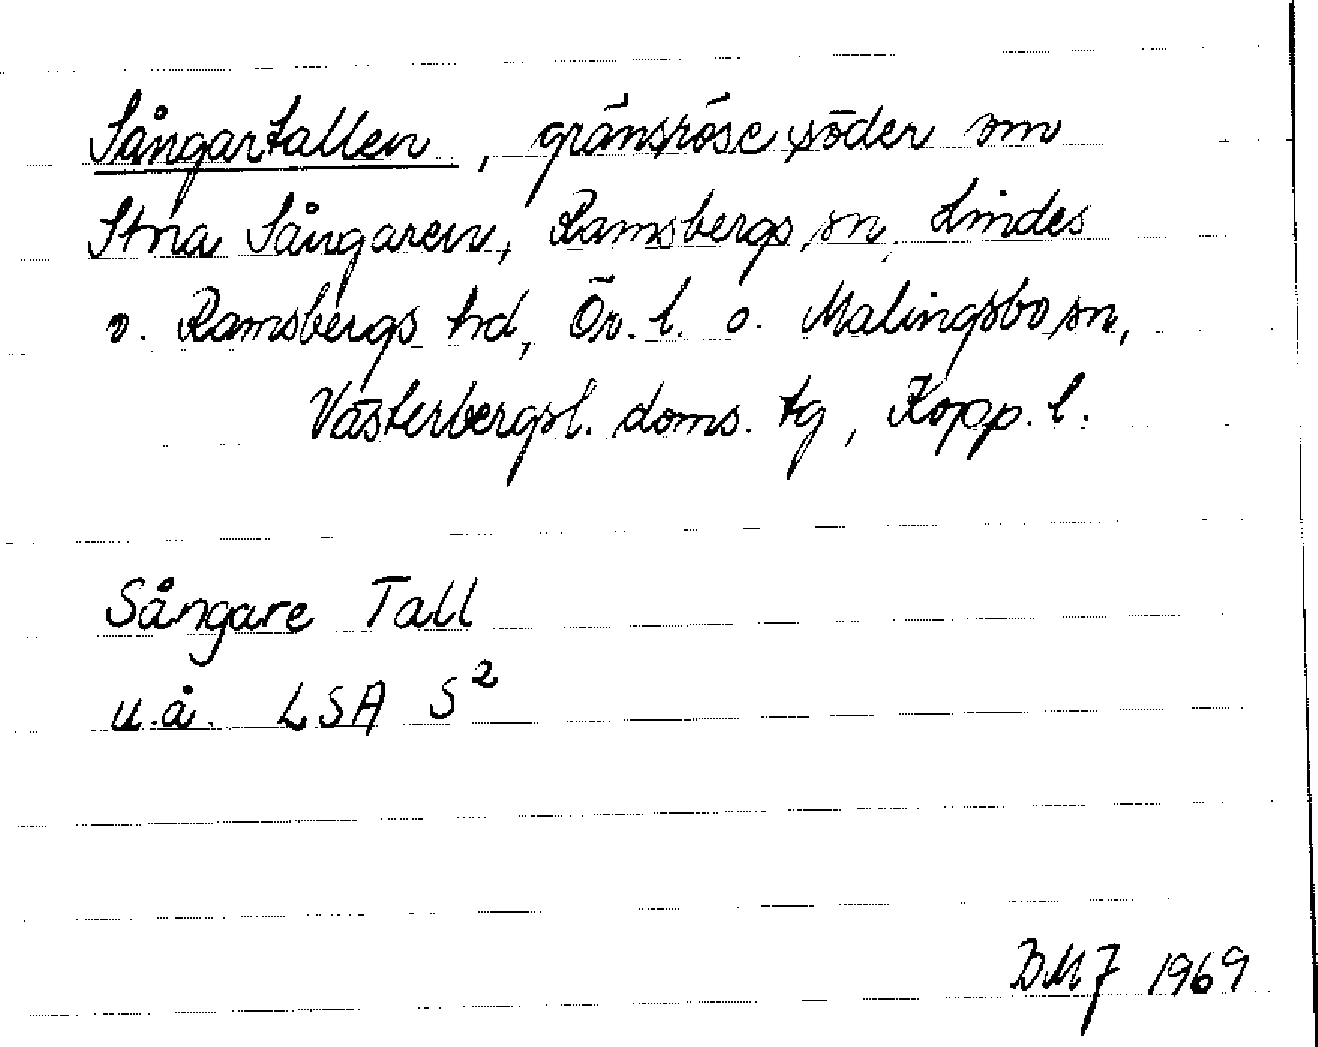 Sångartallen, gränsröse söder om
Stora Sångaren, Ramsbergs sn, Lindes
o. Ramsbergs hd, Ör. l. o. Malingsbo sn,
Västerbergsl. doms. tg, Kopp. l.
Sångare Tall
u.å. LSA S²
BMJ 1969